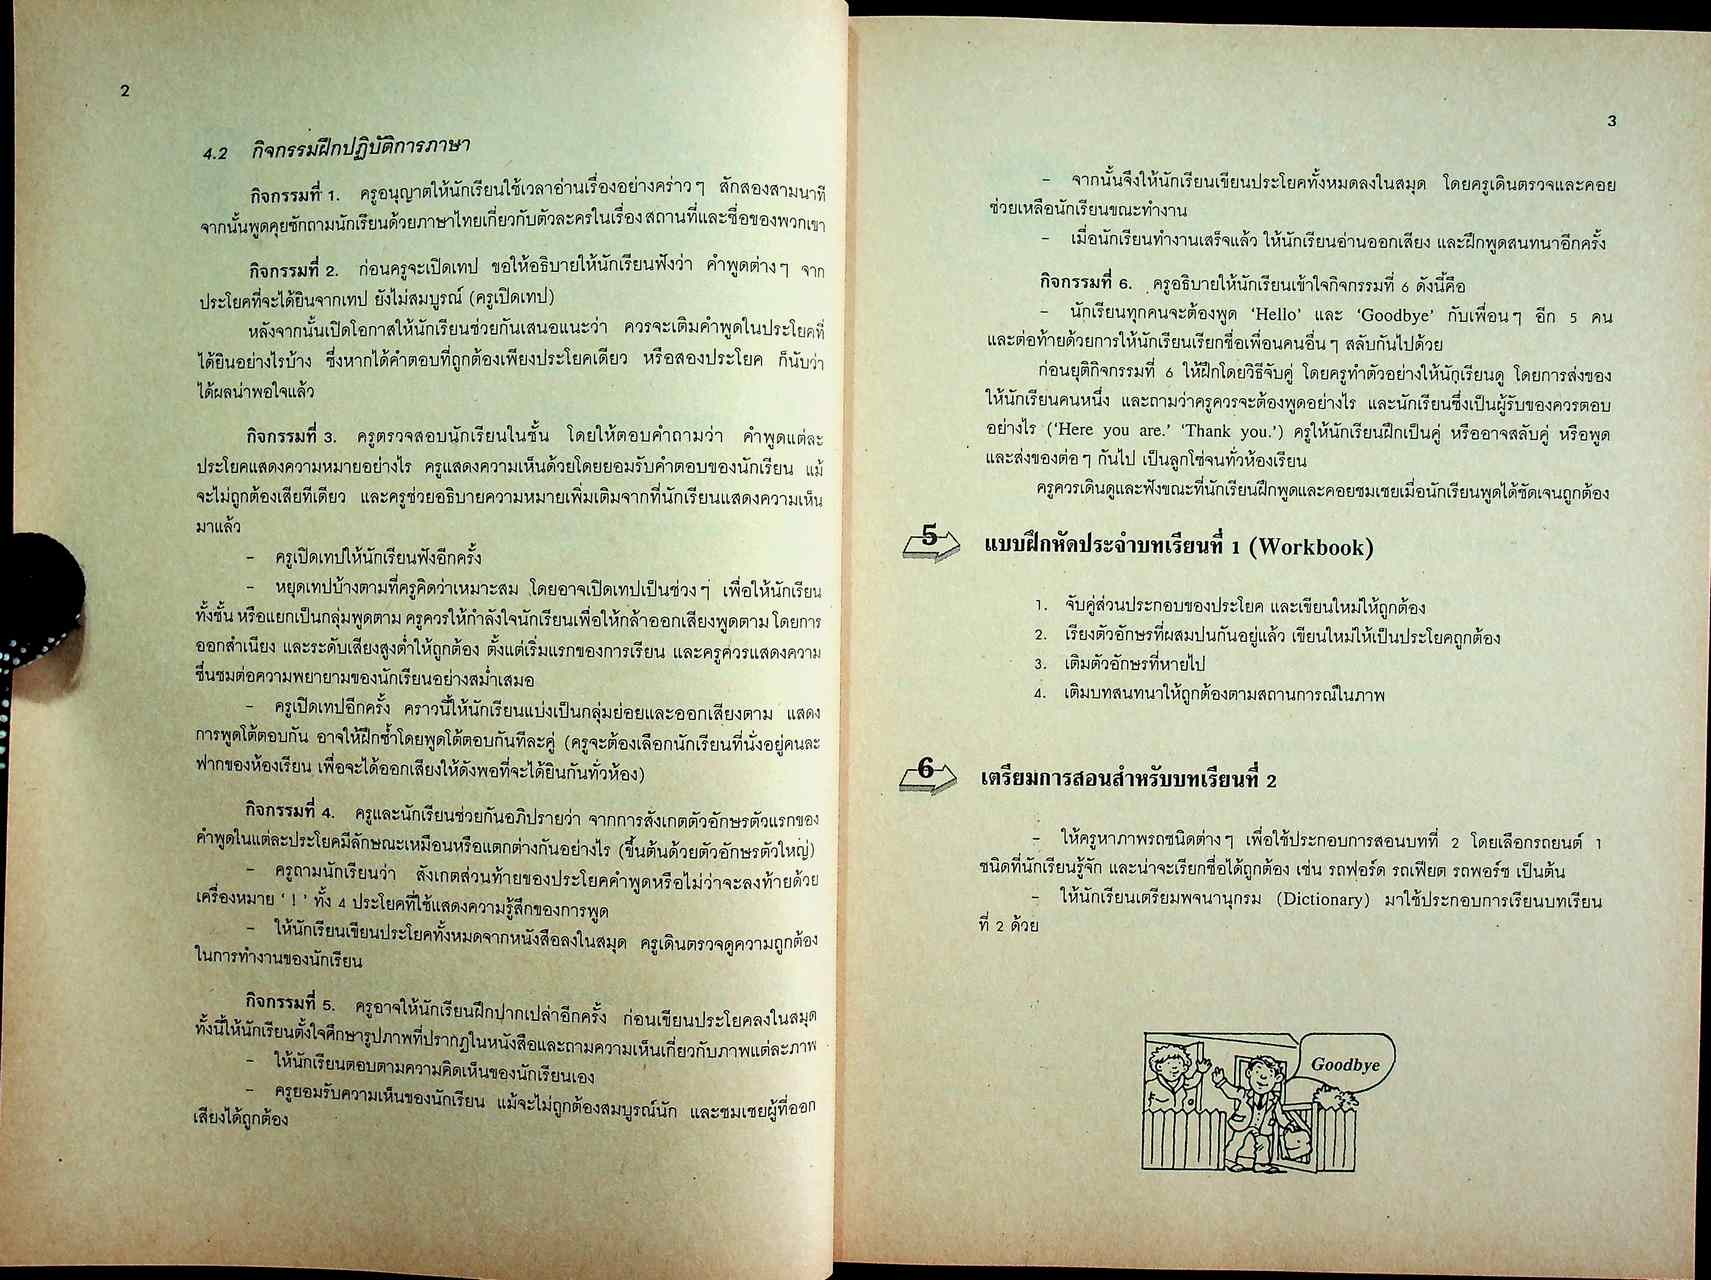 2
4.2 กิจกรรมฝึกปฏิบัติการภาษา
กิจกรรมที่ 1. ครูอนุญาตให้นักเรียนใช้เวลาอ่านเรื่องอย่างคร่าวๆ สักสองสามนาที
จากนั้นพูดคุยซักถามนักเรียนด้วยภาษาไทยเกี่ยวกับตัวละครในเรื่อง สถานที่และชื่อของพวกเขา
กิจกรรมที่ 2. ก่อนครูจะเปิดเทป ขอให้อธิบายให้นักเรียนฟังว่า คำพูดต่างๆ จาก
ประโยคที่จะได้ยินจากเทป ยังไม่สมบูรณ์ (ครูเปิดเทป)
หลังจากนั้นเปิดโอกาสให้นักเรียนช่วยกันเสนอแนะว่า ควรจะเติมคำพูดในประโยคที่
ได้ยินอย่างไรบ้าง ซึ่งหากได้คำตอบที่ถูกต้องเพียงประโยคเดียว หรือสองประโยค ก็นับว่า
ได้ผลน่าพอใจแล้ว
กิจกรรมที่ 3. ครูตรวจสอบนักเรียนในชั้น โดยให้ตอบคำถามว่า คำพูดแต่ละ
ประโยคแสดงความหมายอย่างไร ครูแสดงความเห็นด้วยโดยยอมรับคำตอบของนักเรียน แม้
จะไม่ถูกต้องเสียทีเดียว และครูช่วยอธิบายความหมายเพิ่มเติมจากที่นักเรียนแสดงความเห็น
มาแล้ว
– ครูเปิดเทปให้นักเรียนฟังอีกครั้ง
– หยุดเทปบ้างตามที่ครูคิดว่าเหมาะสม โดยอาจเปิดเทปเป็นช่วงๆ เพื่อให้นักเรียน
ทั้งชั้น หรือแยกเป็นกลุ่มพูดตาม ครูควรให้กำลังใจนักเรียนเพื่อให้กล้าออกเสียงพูดตาม โดยการ
ออกสำเนียง และระดับเสียงสูงต่ำให้ถูกต้อง ตั้งแต่เริ่มแรกของการเรียน และครูควรแสดงความ
ชื่นชมต่อความพยายามของนักเรียนอย่างสม่ำเสมอ
– ครูเปิดเทปอีกครั้ง คราวนี้ให้นักเรียนแบ่งเป็นกลุ่มย่อยและออกเสียงตาม แสดง
การพูดโต้ตอบกัน อาจให้ฝึกซ้ำโดยพูดโต้ตอบกันทีละคู่ (ครูจะต้องเลือกนักเรียนที่นั่งอยู่คนละ
ฟากของห้องเรียน เพื่อจะได้ออกเสียงให้ดังพอที่จะได้ยินกันทั่วห้อง)
กิจกรรมที่ 4. ครูและนักเรียนช่วยกันอภิปรายว่า จากการสังเกตตัวอักษรตัวแรกของ
คำพูดในแต่ละประโยคมีลักษณะเหมือนหรือแตกต่างกันอย่างไร (ขึ้นต้นด้วยตัวอักษรตัวใหญ่)
– ครูถามนักเรียนว่า สังเกตส่วนท้ายของประโยคคำพูดหรือไม่ว่าจะลงท้ายด้วย
เครื่องหมาย ‘ ! ’ ทั้ง 4 ประโยคที่ใช้แสดงความรู้สึกของการพูด
– ให้นักเรียนเขียนประโยคทั้งหมดจากหนังสือลงในสมุด ครูเดินตรวจดูความถูกต้อง
ในการทำงานของนักเรียน
กิจกรรมที่ 5. ครูอาจให้นักเรียนฝึกปากเปล่าอีกครั้ง ก่อนเขียนประโยคลงในสมุด
ทั้งนี้ให้นักเรียนตั้งใจศึกษารูปภาพที่ปรากฏในหนังสือและถามความเห็นเกี่ยวกับภาพแต่ละภาพ
– ให้นักเรียนตอบตามความคิดเห็นของนักเรียนเอง
– ครูยอมรับความเห็นของนักเรียน แม้จะไม่ถูกต้องสมบูรณ์นัก และชมเชยผู้ที่ออก
เสียงได้ถูกต้อง
3
– จากนั้นจึงให้นักเรียนเขียนประโยคทั้งหมดลงในสมุด โดยครูเดินตรวจและคอย
ช่วยเหลือนักเรียนขณะทำงาน
– เมื่อนักเรียนทำงานเสร็จแล้ว ให้นักเรียนอ่านออกเสียง และฝึกพูดสนทนาอีกครั้ง
กิจกรรมที่ 6. ครูอธิบายให้นักเรียนเข้าใจกิจกรรมที่ 6 ดังนี้คือ
– นักเรียนทุกคนจะต้องพูด ‘Hello’ และ ‘Goodbye’ กับเพื่อนๆ อีก 5 คน
และต่อท้ายด้วยการให้นักเรียนเรียกชื่อเพื่อนคนอื่นๆ สลับกันไปด้วย
ก่อนยุติกิจกรรมที่ 6 ให้ฝึกโดยวิธีจับคู่ โดยครูทำตัวอย่างให้นักเรียนดู โดยการส่งของ
ให้นักเรียนคนหนึ่ง และถามว่าครูควรจะต้องพูดอย่างไร และนักเรียนซึ่งเป็นผู้รับของควรตอบ
อย่างไร (‘Here you are.’ ‘Thank you.’) ครูให้นักเรียนฝึกเป็นคู่ หรืออาจสลับคู่ หรือพูด
และส่งของต่อๆ กันไป เป็นลูกโซ่จนทั่วห้องเรียน
ครูควรเดินดูและฟังขณะที่นักเรียนฝึกพูดและคอยชมเชยเมื่อนักเรียนพูดได้ชัดเจนถูกต้อง
5 แบบฝึกหัดประจำบทเรียนที่ 1 (Workbook)
1. จับคู่ส่วนประกอบของประโยค และเขียนใหม่ให้ถูกต้อง
2. เรียงตัวอักษรที่ผสมปนกันอยู่แล้ว เขียนใหม่ให้เป็นประโยคถูกต้อง
3. เติมตัวอักษรที่หายไป
4. เติมบทสนทนาให้ถูกต้องตามสถานการณ์ในภาพ
6 เตรียมการสอนสำหรับบทเรียนที่ 2
– ให้ครูหาภาพรถชนิดต่างๆ เพื่อใช้ประกอบการสอนบทที่ 2 โดยเลือกรถยนต์ 1
ชนิดที่นักเรียนรู้จัก และน่าจะเรียกชื่อได้ถูกต้อง เช่น รถฟอร์ด รถเฟียต รถพอร์ช เป็นต้น
– ให้นักเรียนเตรียมพจนานุกรม (Dictionary) มาใช้ประกอบการเรียนบทเรียน
ที่ 2 ด้วย
Goodbye